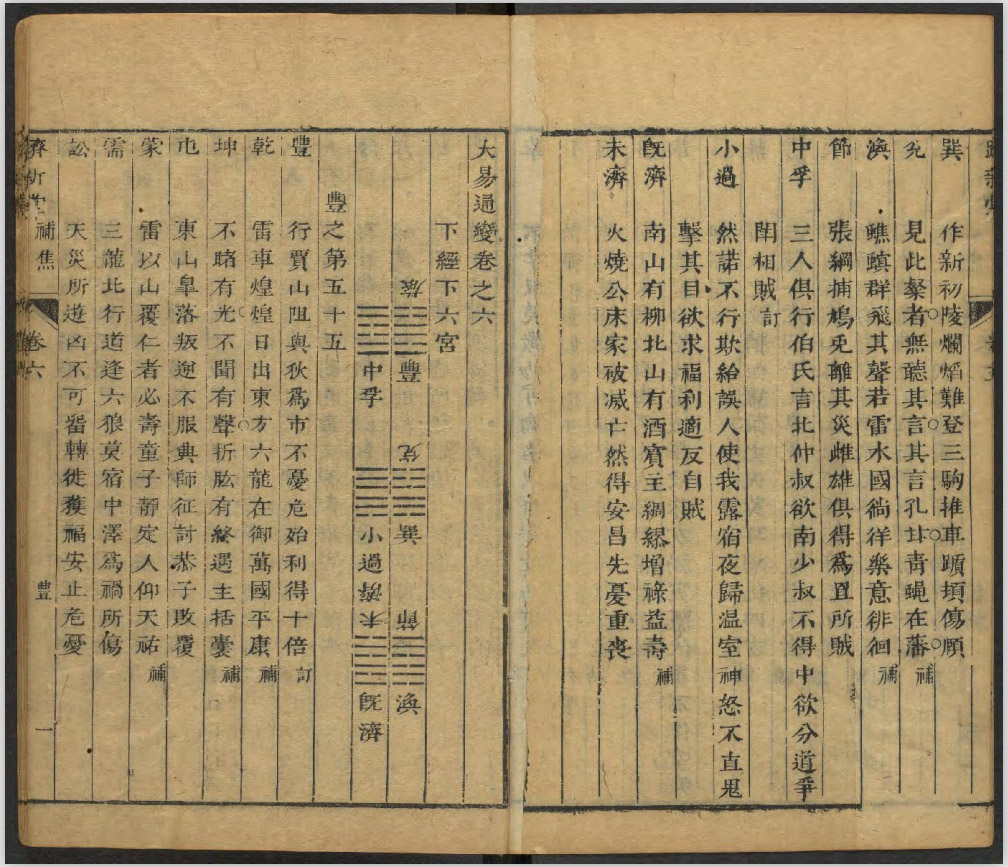 巽　作新初陵爛熖難登三駒推車躓頃傷頤
兊　見此蔾者無聽其言其言孔甘靑蝿在藩 補
渙　蟭螟群飛其聲若雷水國徜徉樂意徘徊 補
節　張綱捕鳩兎離其災雌雄俱得爲且所賊
中孚　三人俱行伯氏言北仲叔欲南少叔不得中欲分道爭
閉相賊 訂
小過　然諾不行欺給誤人使我露宿夜歸温室神怒不直鬼
擊其目欲求福利適反自賊
旣濟　南山有柳北山有酒賓主綢繆增祿益壽 補
未濟　火燒公床家破滅亡然得安昌先憂重喪
大易通變卷之六
下經下六宮
旅 豐 兌 巽 節 渙
中孚 小過 未濟 旣濟
豐之第五十五
豐　行賈山阻與秋爲市不憂危殆利得十倍 訂
乾　雷車煌煌日出東方六龍在御萬國平康 補
坤　不睹有光不聞有聲折肱有終遇主括囊 補
屯　東山臯落叛逆不服興師征討恭子敗覆
蒙　雷以山覆仁者必壽童子靜定人仰天祐 補
需　三龍北行道逢六狼莫宿中澤爲禍所傷
訟　天災所遊凶不可畱轉徙獲福安止危憂
補焦 卷六 豐 一